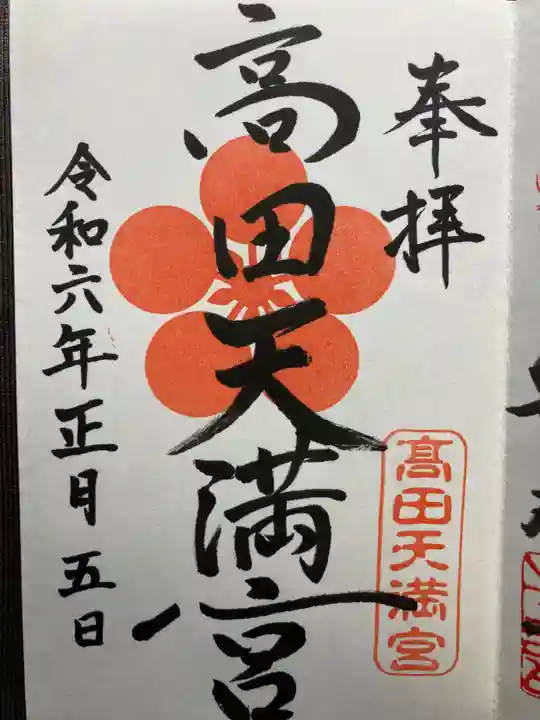 奉拝
高田天満宮
髙田天満宮
令和六年正月五日